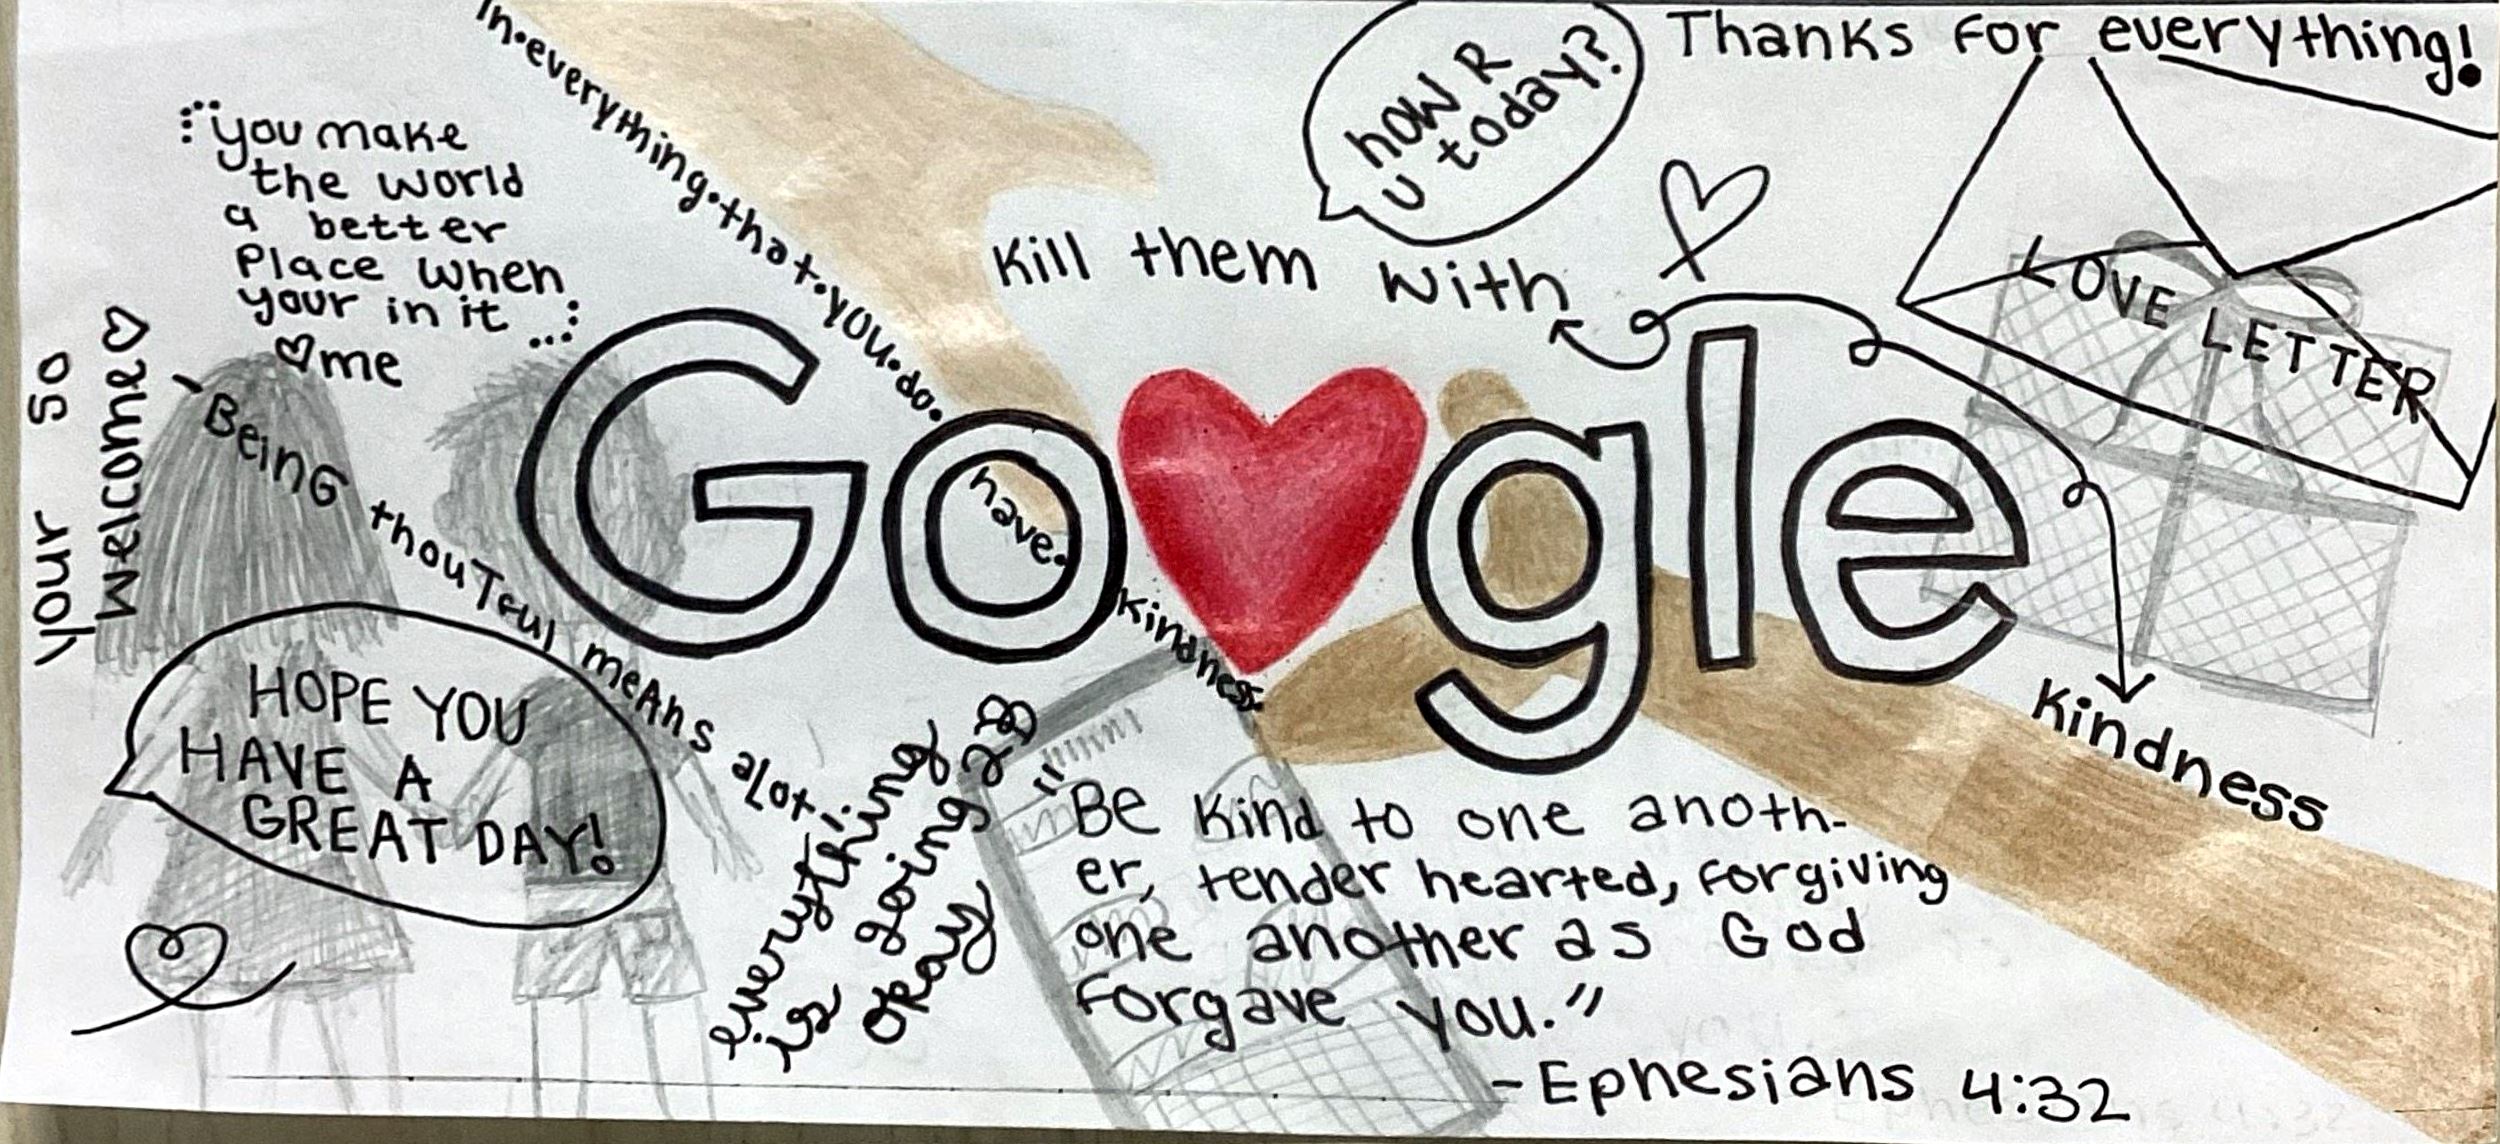 In•everything•that•you•do•
have•
kindness•
you make
the world
a better
Place when
your in it
♡me
your so
welcome♡
Being thouTful meAns alot!
HOPE YOU
HAVE A
GREAT DAY!
everything
is going 2 B
okay
Google
Kill them with
kindness
how R
u today?
Thanks for everything!
LOVE LETTER
"Be kind to one anoth-
er, tender hearted, forgiving
one another as God
forgave you."
-Ephesians 4:32